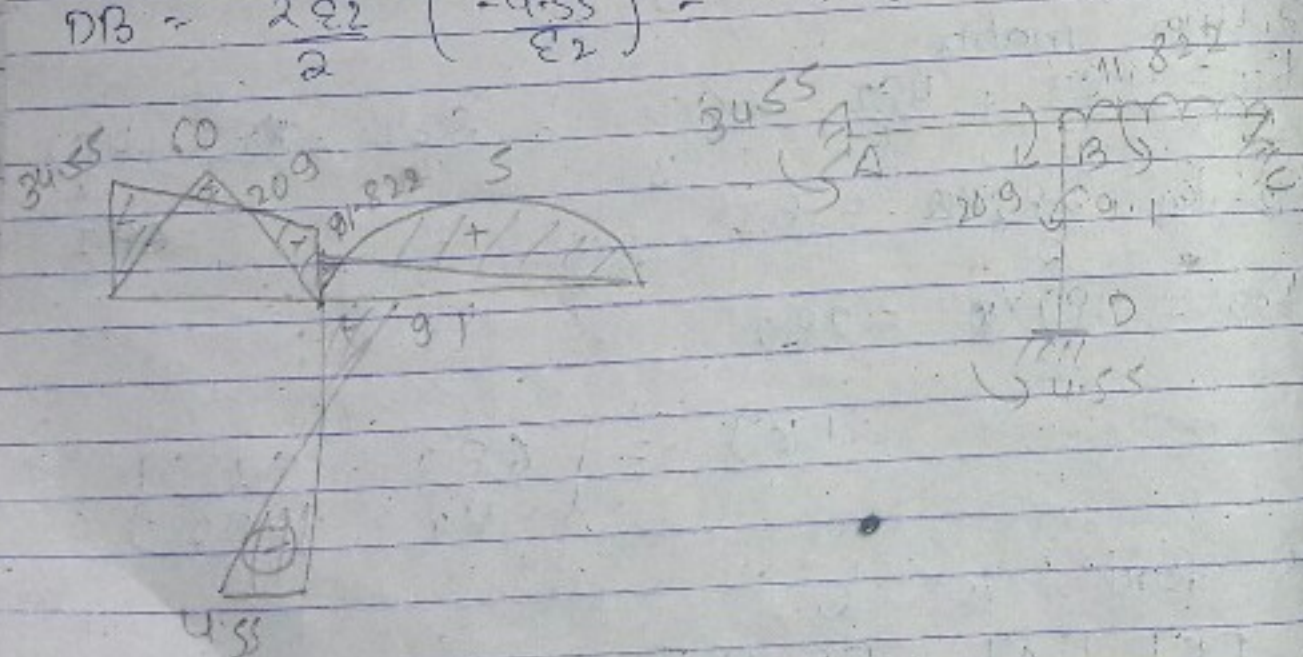 DB = 2EI/2 (-4.55/EI) =
34.55 60 20.9 11.822 5
+
9.1
4.55
34.55 11.822
A B C
20.9 9.1
D
4.55